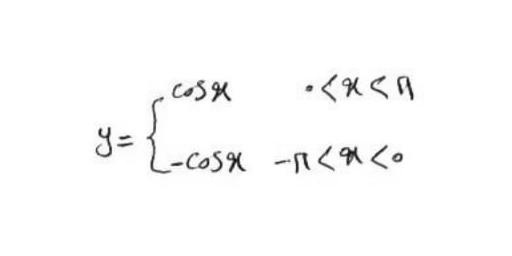 y = { cosx   0<x<π
-cosx   -π<x<0